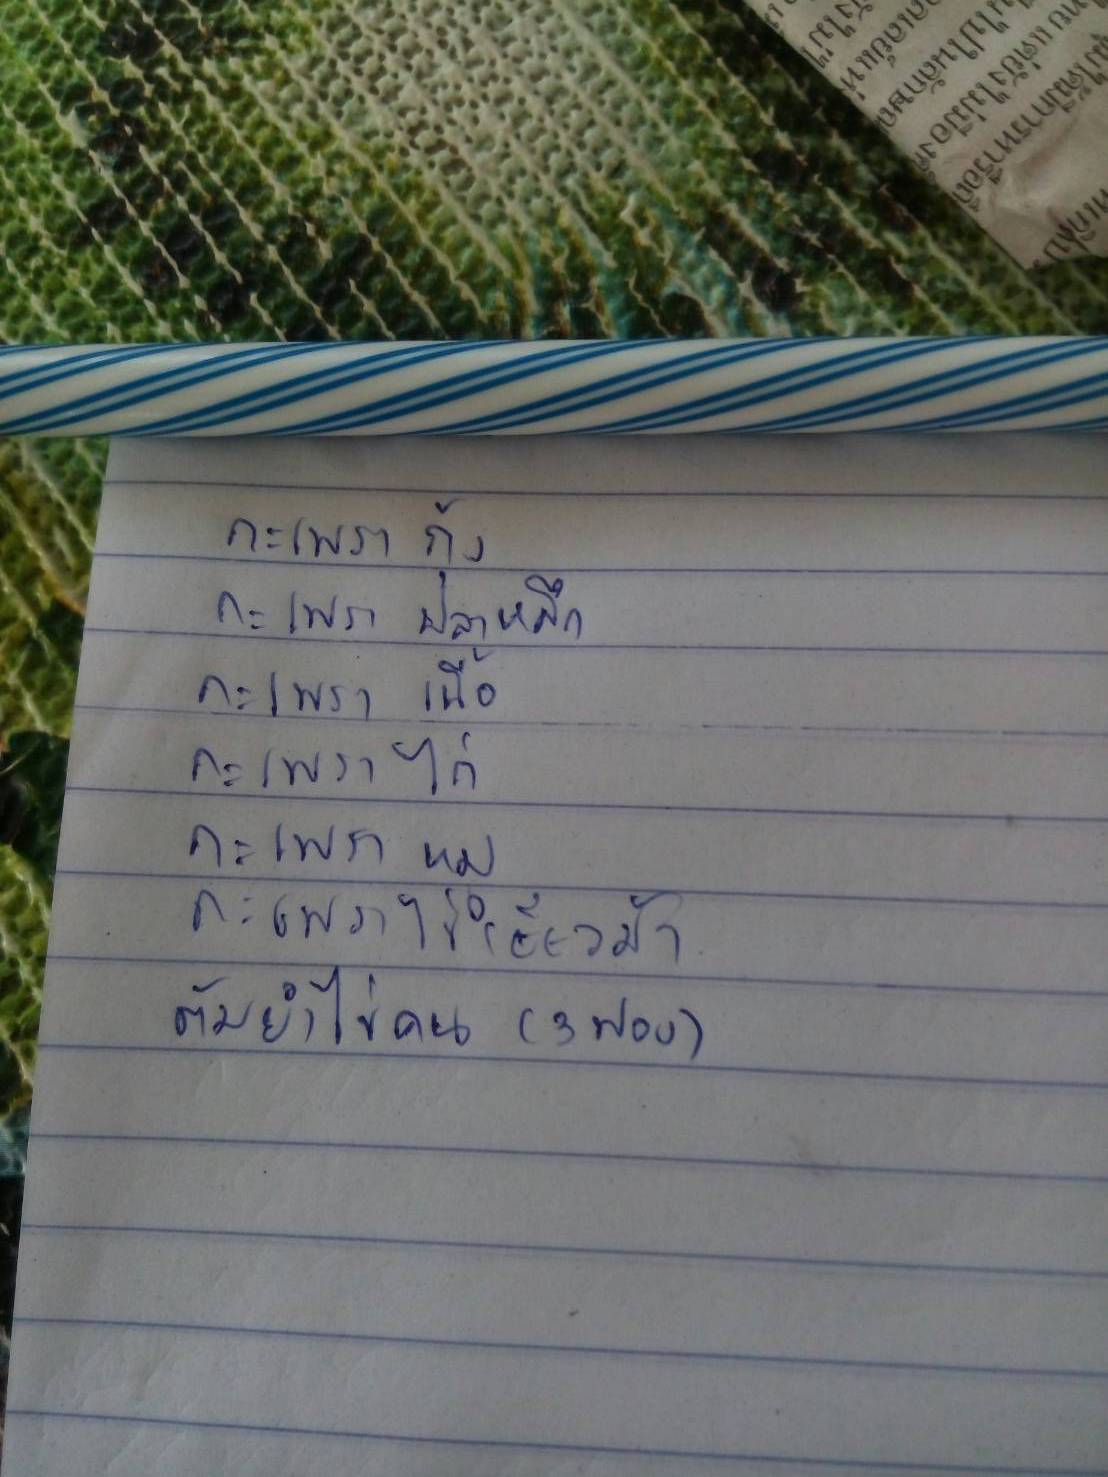 กะเพรา กุ้ง
กะเพรา ปลาหมึก
กะเพรา เนื้อ
กะเพรา ไก่
กะเพรา หมู
กะเพราไข่เยี่ยวม้า
ต้มยำไข่คน (3 ฟอง)